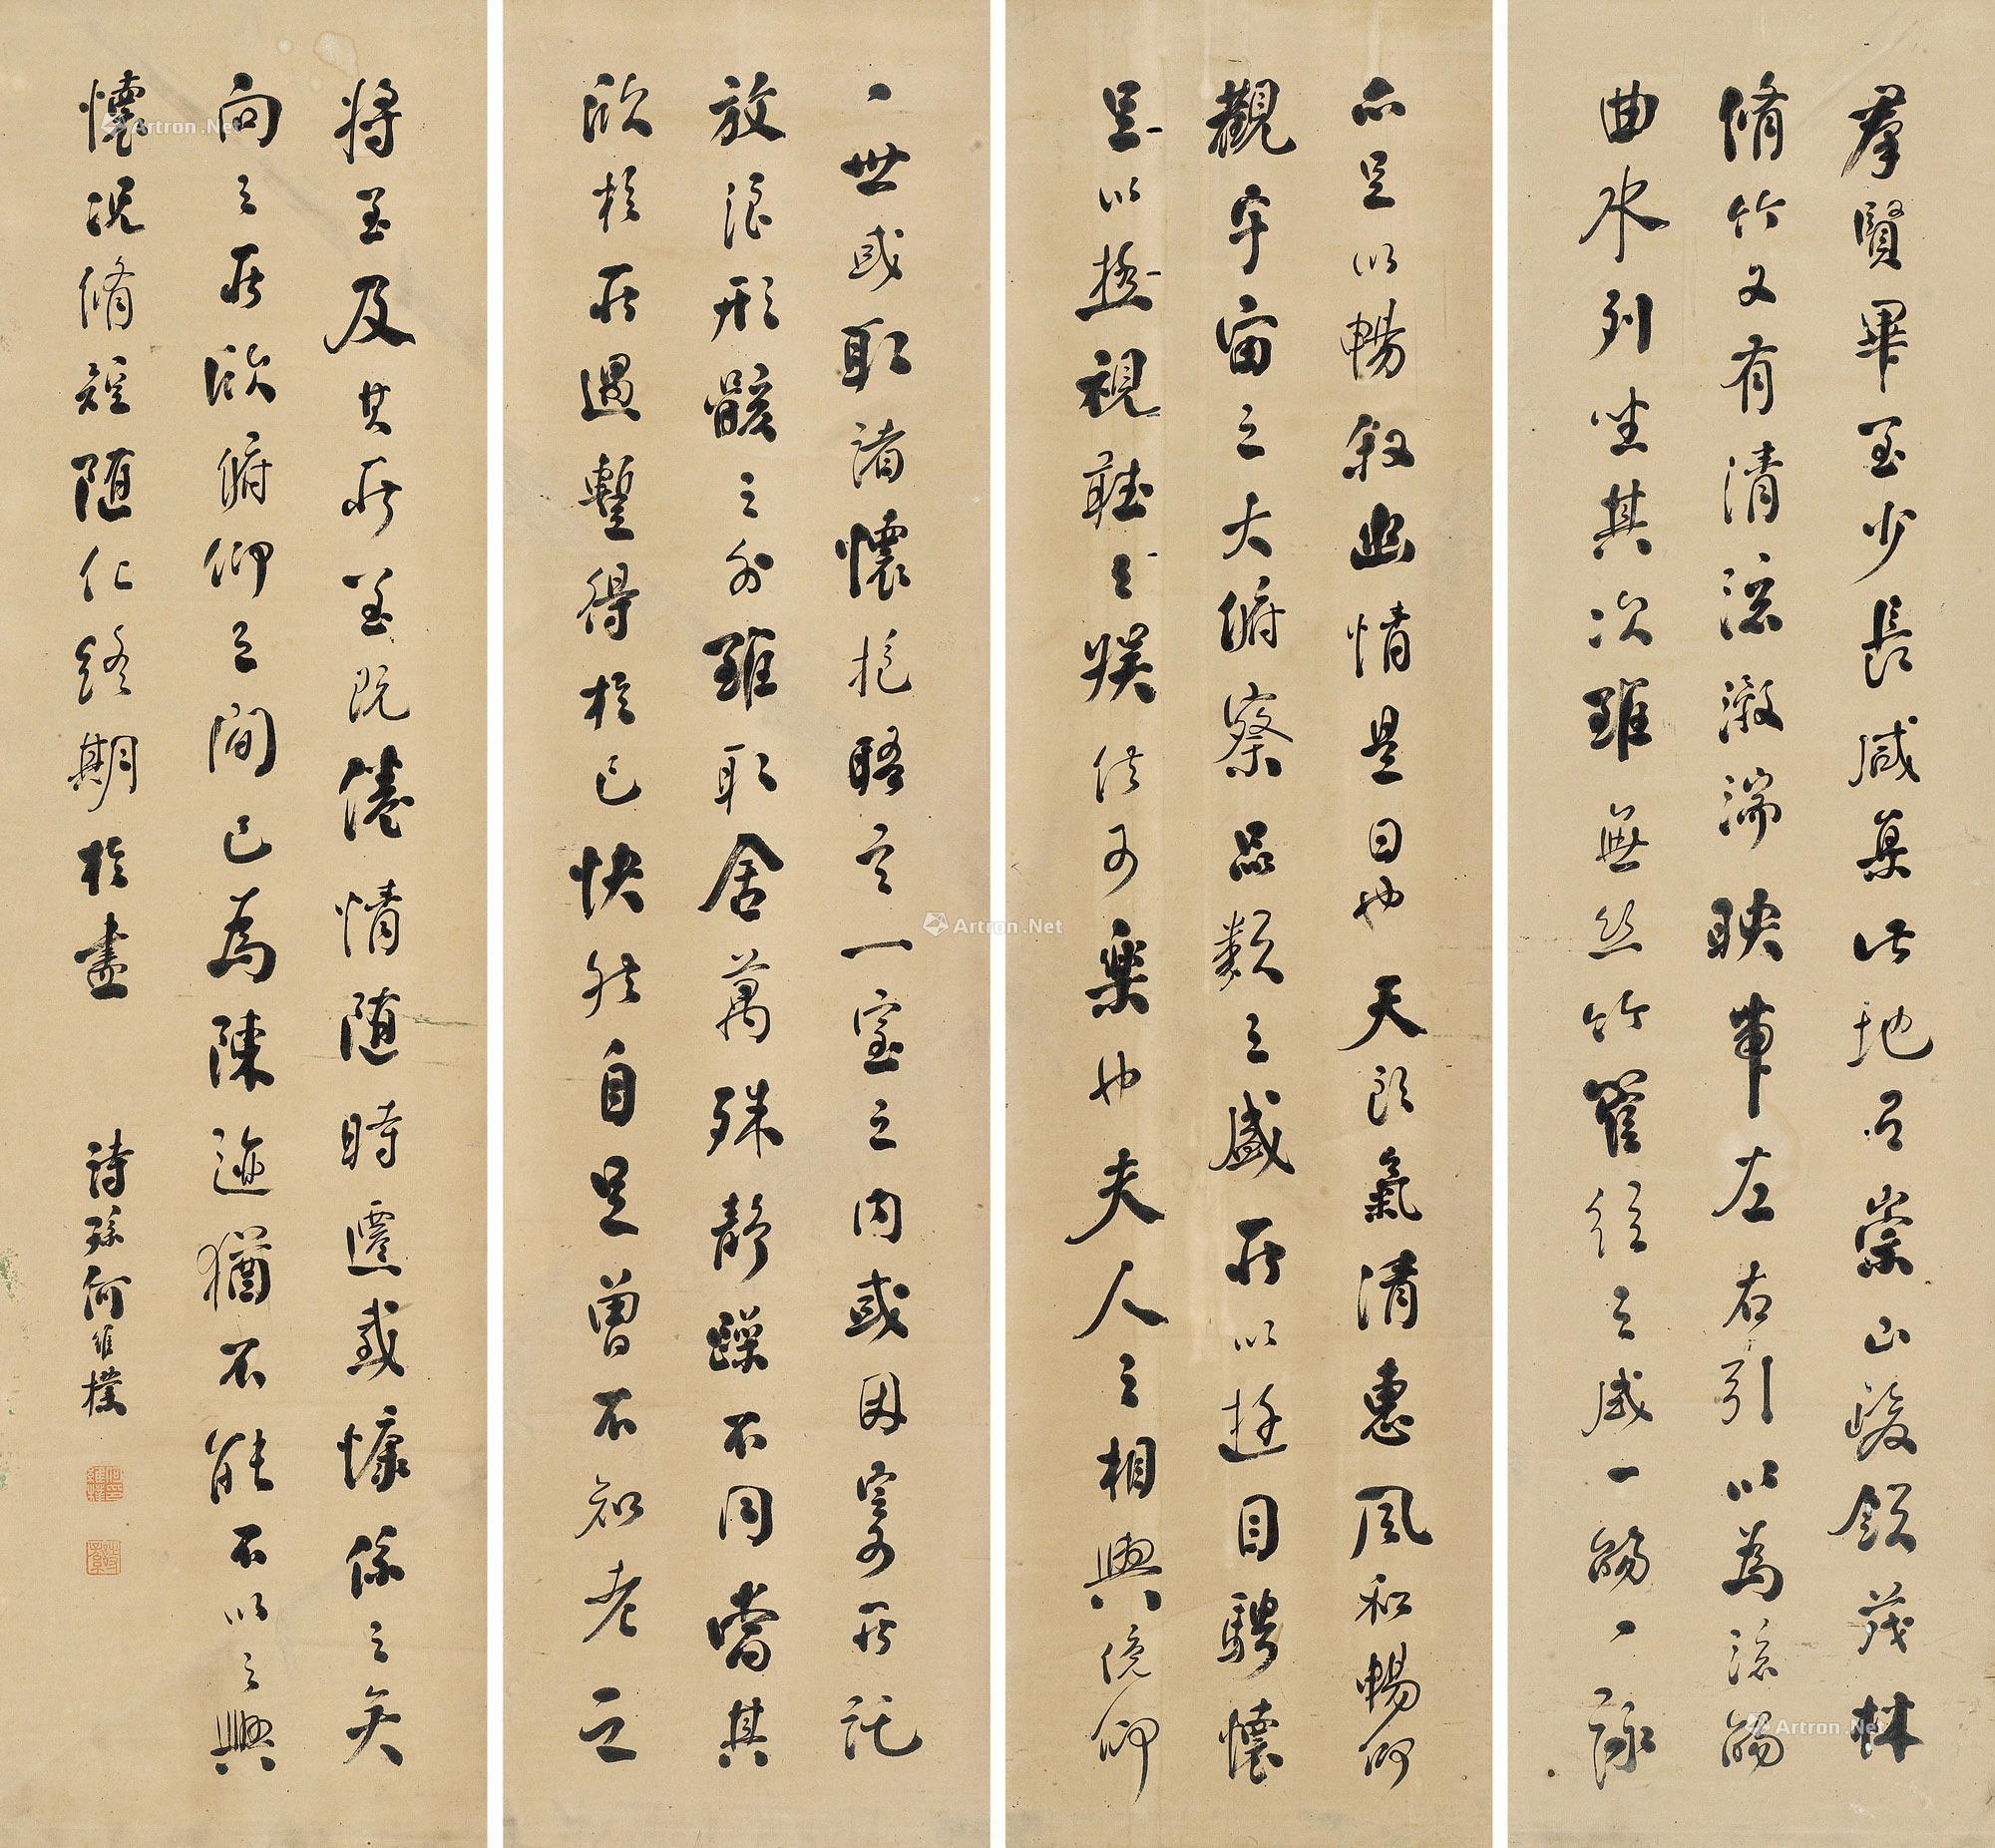 羣賢畢至少長咸集此地有崇山峻領茂林
脩竹又有清流激湍映帶左右引以為流觴
曲水列坐其次雖無絲竹管絃之盛一觴一詠
亦足以暢敘幽情是日也天朗氣清惠風和暢仰
觀宇宙之大俯察品類之盛所以遊目騁懷
足以極視聽之娛信可樂也夫人之相與俛仰
一世或取諸懷抱晤言一室之內或因寄所託
放浪形骸之外雖取舍萬殊靜躁不同當其
欣於所遇暫得於己快然自足曾不知老之
將至及其所至既倦情隨時遷感慷係之矣
向之所欣俯仰之間已為陳迹猶不能不以之興
懷況脩短隨化終期於盡
詩孫何維樸
Artron.Net
Artron.Net
Artron.Net